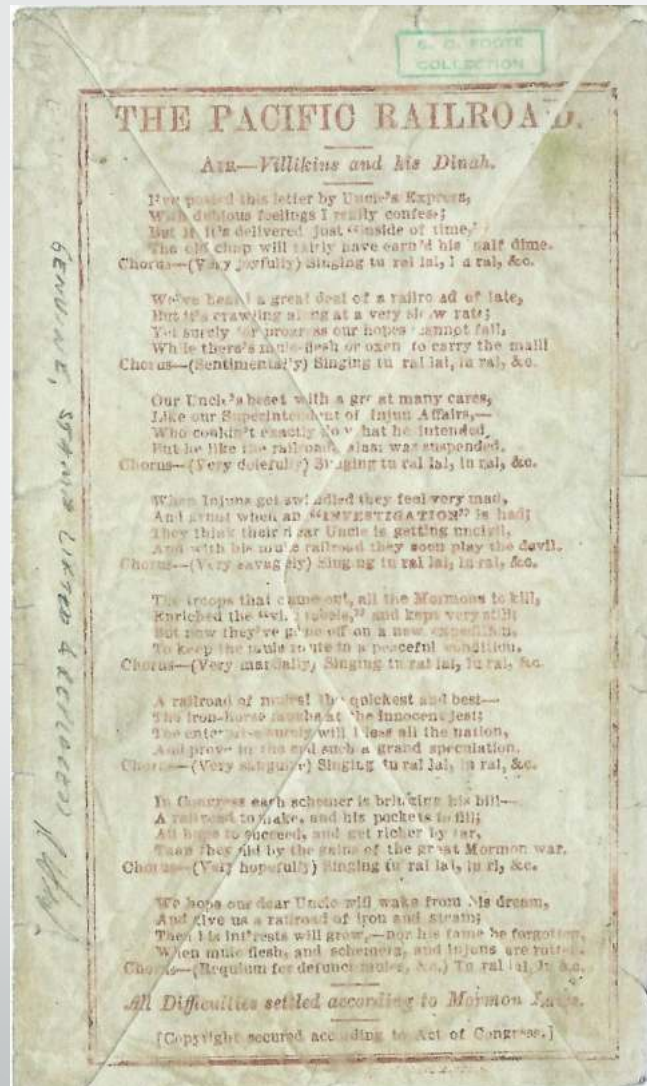 S. C. FOOTE
COLLECTION
THE PACIFIC RAILROAD.
AIR—Villikins and his Dinah.
I've posted this letter by Uncle's Express,
With dubious feelings I really confess;
But if it's delivered just "inside of time,"
The old chap will fairly have earn'd his half dime.
Chorus—(Very joyfully) Singing tu ral lal, l a ral, &c.
We've heard a great deal of a railroad of late,
But it's crawling along at a very slow rate;
Yet surely for progress our hopes cannot fail,
While there's mule-flesh or oxen to carry the mail!
Chorus—(Sentimentally) Singing tu ral lal, lu ral, &c.
Our Uncle's beset with a great many cares,
Like our Superintendent of Injun Affairs,—
Who couldn't exactly do what he intended,
But he like the railroad, alas! was suspended.
Chorus—(Very dolefully) Singing tu ral lal, lu ral, &c.
When Injuns get swindled they feel very mad,
And grunt when an "INVESTIGATION" is had;
They think their dear Uncle is getting uncivil,
And with his mule railroad they soon play the devil.
Chorus—(Very savagely) Singing tu ral lal, lu ral, &c.
The troops that came out, all the Mormons to kill,
Enriched the "vile rebels," and kept very still;
But now they've gone off on a new expedition,
To keep the mule route in a peaceful condition.
Chorus—(Very martially) Singing tu ral lal, lu ral, &c.
A railroad of mules! the quickest and best—
The iron-horse laughs at the innocent jest;
The enterprise surely will bless all the nation,
And prove in the end such a grand speculation.
Chorus—(Very sanguine) Singing tu ral lal, lu ral, &c.
In Congress each schemer is bringing his bill—
A railroad to make, and his pockets to fill;
All hope to succeed, and get richer by far,
Than they did by the gains of the great Mormon war.
Chorus—(Very hopefully) Singing tu ral lal, lu rl, &c.
We hope our dear Uncle will wake from his dream,
And give us a railroad of iron and steam;
Then his int'rests will grow,—nor his fame be forgotten,
When mule flesh, and schemers, and Injuns are rotten.
Chorus—(Requium for defunct mules, &c.) Tu ral lal, lu &c.
All Difficulties settled according to Mormon
[Copyright secured according to Act of Congress.]
GENUINE, STAMP LIFTED & REPLACED